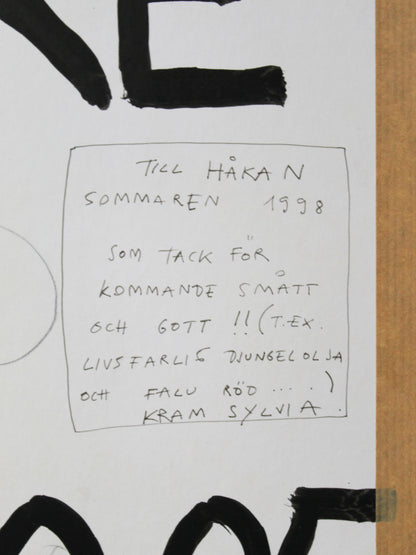 KE
TILL HÅKAN
SOMMAREN 1998
SOM TACK FÖR
KOMMANDE SMÅTT
OCH GOTT !! (T.EX.
LIVSFARLIG DJUNGELOLJA
OCH FALU RÖD .... .)
KRAM SYLVIA .